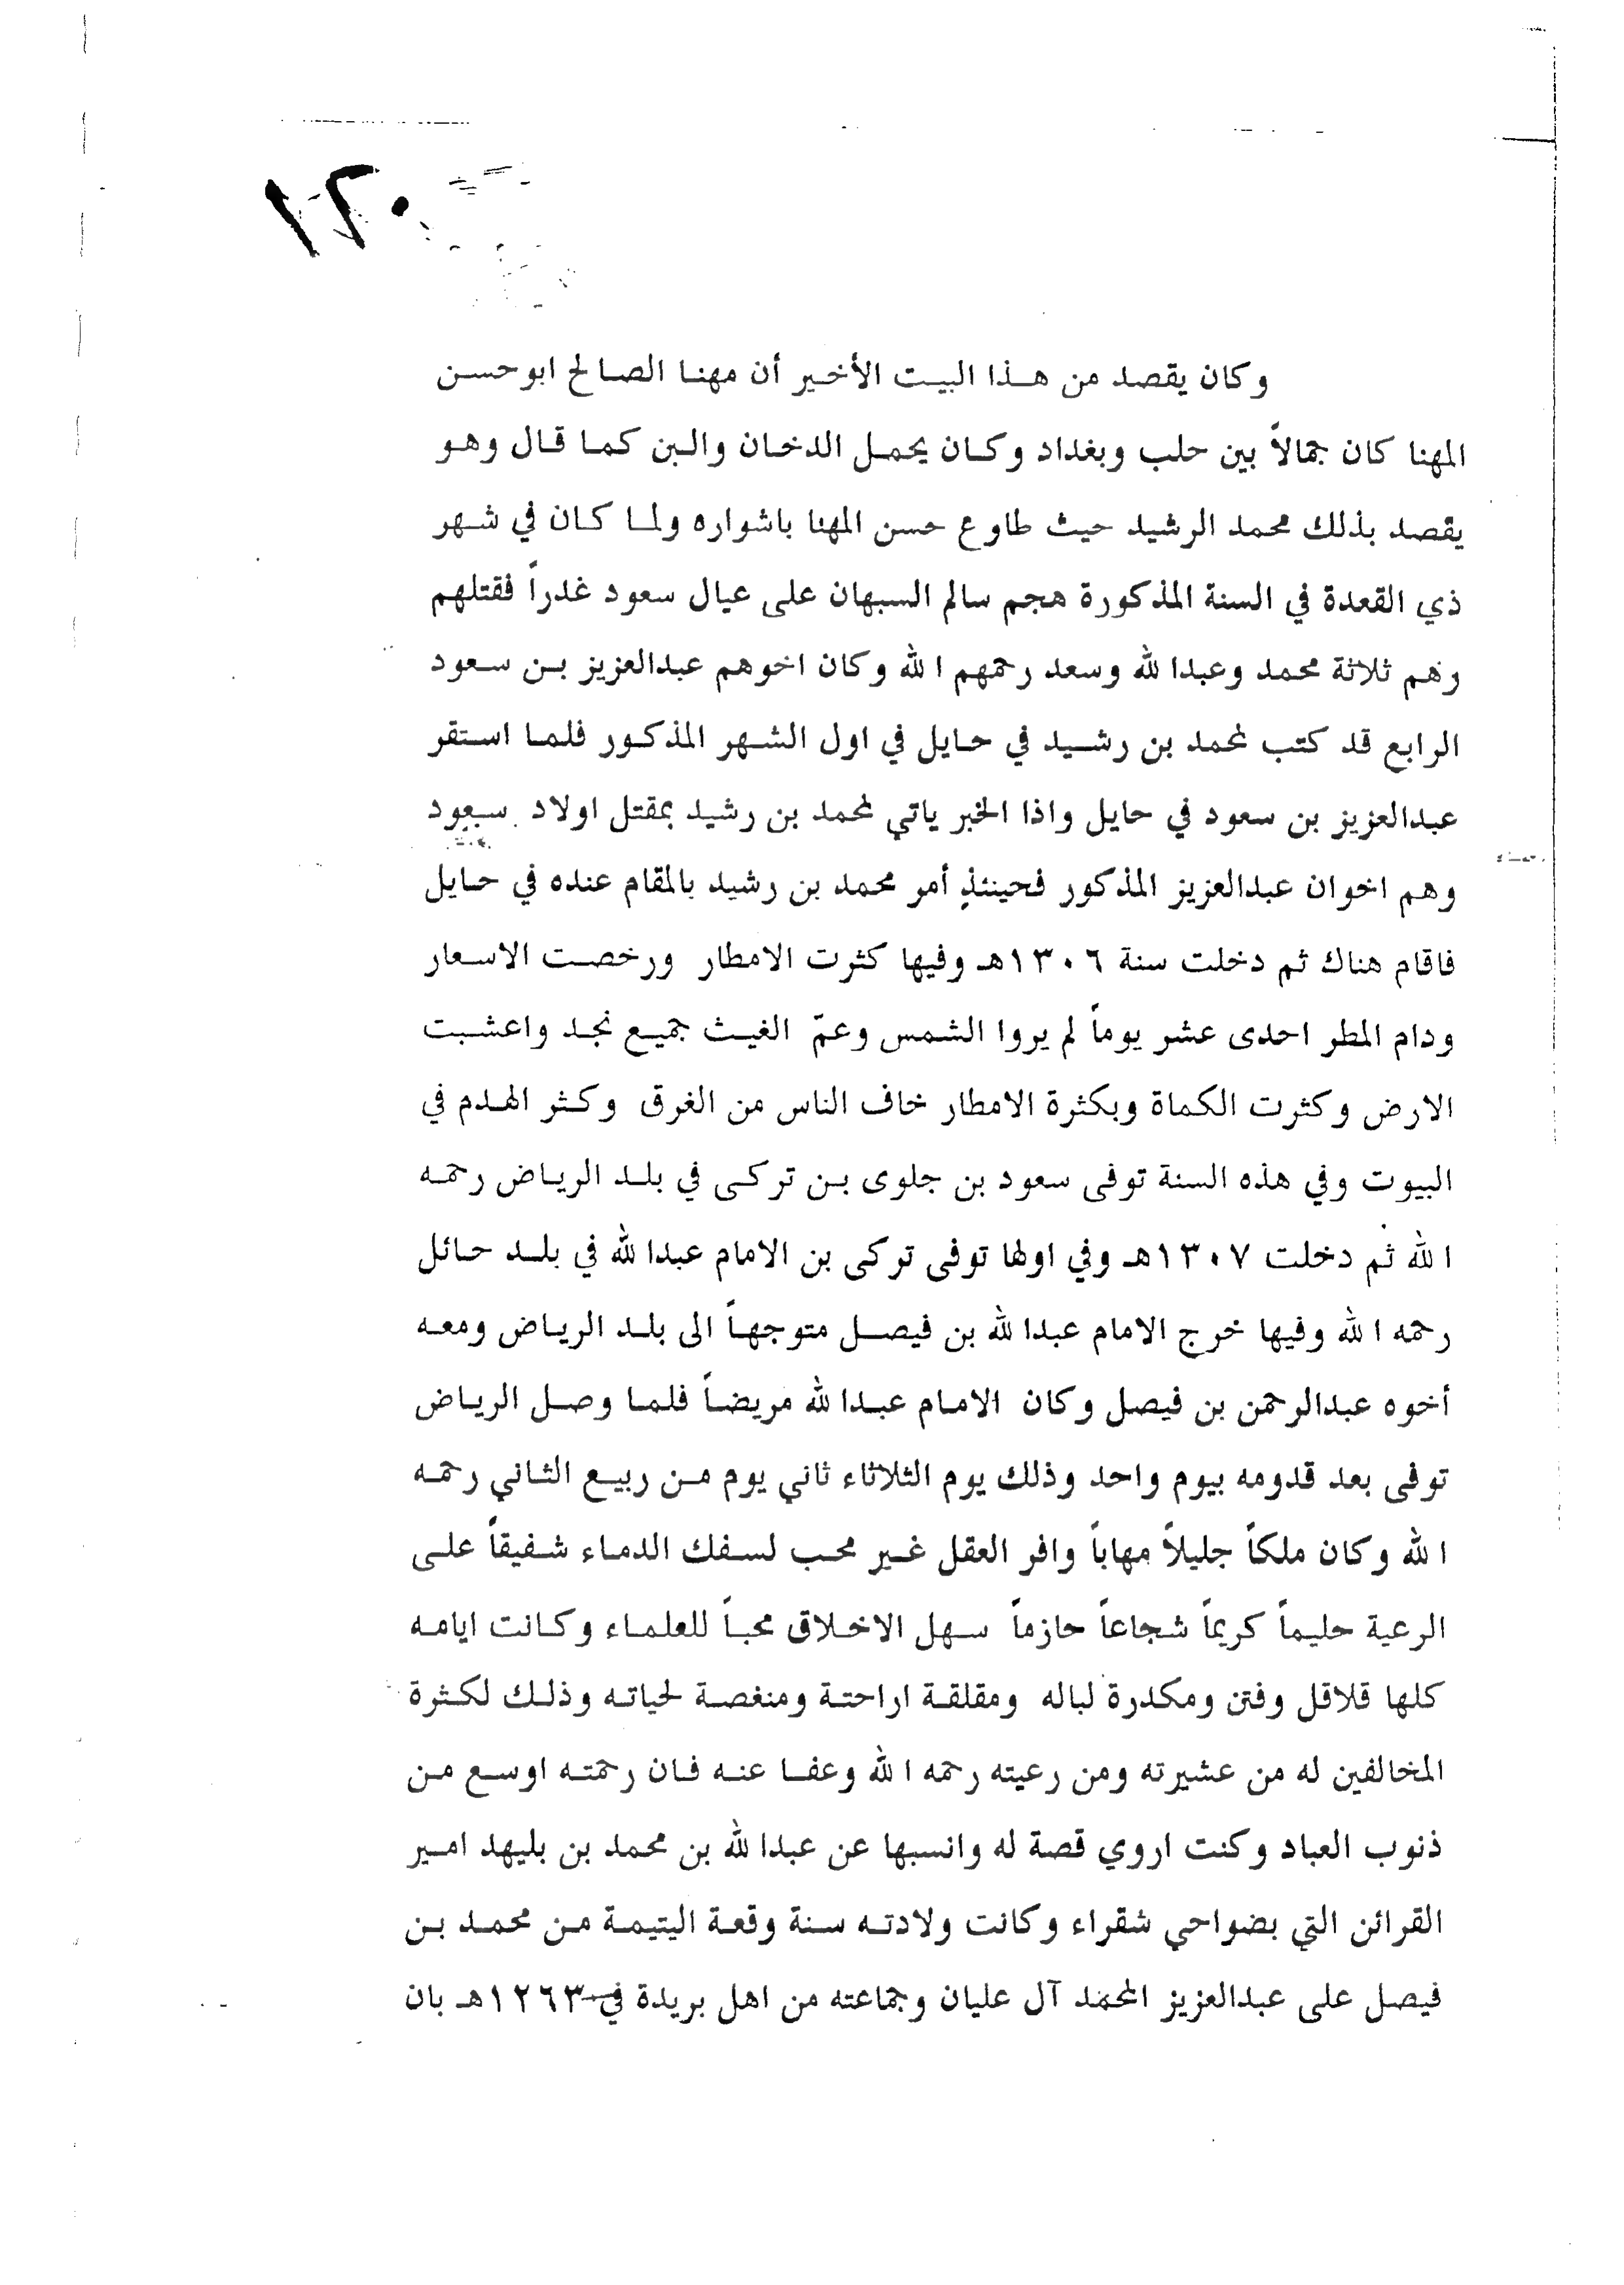 ١٢٠
وكان يقصد من هذا البيت الأخير أن مهنا الصالح ابو حسن
المهنا كان جمالاً بين حلب وبغداد وكان يحمل الدخان والبن كما قال وهو
يقصد بذلك محمد الرشيد حيث طاوع حسن المهنا باشواره ولما كان في شهر
ذي القعدة في السنة المذكورة هجم سالم السبهان على عيال سعود غدراً فقتلهم
وهم ثلاثة محمد وعبدالله وسعد رحمهم الله وكان اخوهم عبدالعزيز بن سعود
الرابع قد كتب لمحمد بن رشيد في حايل في اول الشهر المذكور فلما استقر
عبدالعزيز بن سعود في حايل واذا الخبر ياتي لمحمد بن رشيد بمقتل اولاد سعود
وهم اخوان عبدالعزيز المذكور فحينئذٍ أمر محمد بن رشيد بالمقام عنده في حايل
فاقام هناك ثم دخلت سنة ١٣٠٦هـ وفيها كثرت الامطار ورخصت الاسعار
ودام المطر احدى عشر يوماً لم يروا الشمس وعمّ الغيث جميع نجد واعشبت
الارض وكثرت الكماة وبكثرة الامطار خاف الناس من الغرق وكثر الهدم في
البيوت وفي هذه السنة توفى سعود بن جلوى بن تركى في بلد الرياض رحمه
الله ثم دخلت ١٣٠٧هـ وفي اولها توفى تركى بن الامام عبدالله في بلد حائل
رحمه الله وفيها خرج الامام عبدالله بن فيصل متوجهاً الى بلد الرياض ومعه
أخوه عبدالرحمن بن فيصل وكان الامام عبدالله مريضاً فلما وصل الرياض
توفى بعد قدومه بيوم واحد وذلك يوم الثلاثاء ثاني يوم من ربيع الثاني رحمه
الله وكان ملكاً جليلاً مهاباً وافر العقل غير محب لسفك الدماء شفيقاً على
الرعية حليماً كريماً شجاعاً حازماً سهل الاخلاق محباً للعلماء وكانت ايامه
كلها قلاقل وفتن ومكدرة لباله ومقلقة اراحتة ومنغصة لحياته وذلك لكثرة
المخالفين له من عشيرته ومن رعيته رحمه الله وعفا عنه فان رحمته اوسع من
ذنوب العباد وكنت اروي قصة له وانسبها عن عبدالله بن محمد بن بليهد امير
القرائن التي بضواحي شقراء وكانت ولادته سنة وقعة اليتيمة من محمد بن
فيصل على عبدالعزيز المحمد آل عليان وجماعته من اهل بريدة في ١٢٦٣هـ بان